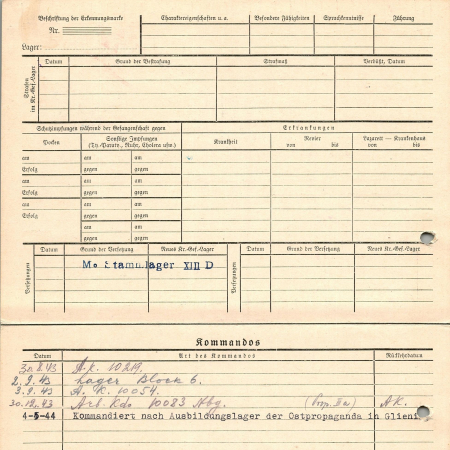 Beschriftung der Erkennungsmarke
Nr.
Lager:
Charaktereigenschaften u. a.
Besondere Fähigkeiten
Sprachkenntnisse
Führung
Strafen im Kr.-Gef.-Lager
Datum
Grund der Bestrafung
Strafmaß
Verbüßt, Datum
Schutzimpfungen während der Gefangenschaft gegen
Erkrankungen
Pocken
Sonstige Impfungen
(Ty.-Paraty., Ruhr, Cholera usw.)
Krankheit
Revier
von bis
Lazarett — Krankenhaus
von bis
am am am
Erfolg gegen gegen
am am am
Erfolg gegen gegen
am am am
Erfolg gegen gegen
am am
gegen gegen
Versetzungen
Datum
Grund der Versetzung
Neues Kr.-Gef.-Lager
Versetzungen
Datum
Grund der Versetzung
Neues Kr.-Gef.-Lager
Stammlager XIII D
Kommandos
Datum
Art des Kommandos
Rückkehrdatum
A.K. 10219.
2.9.43 Lager Block 6.
3.9.43 A.K. 10054.
30.12.43 Arb. Kdo 10083 Nbg. AK.
4-5-44 Kommandiert nach Ausbildungslager der Ostpropaganda in